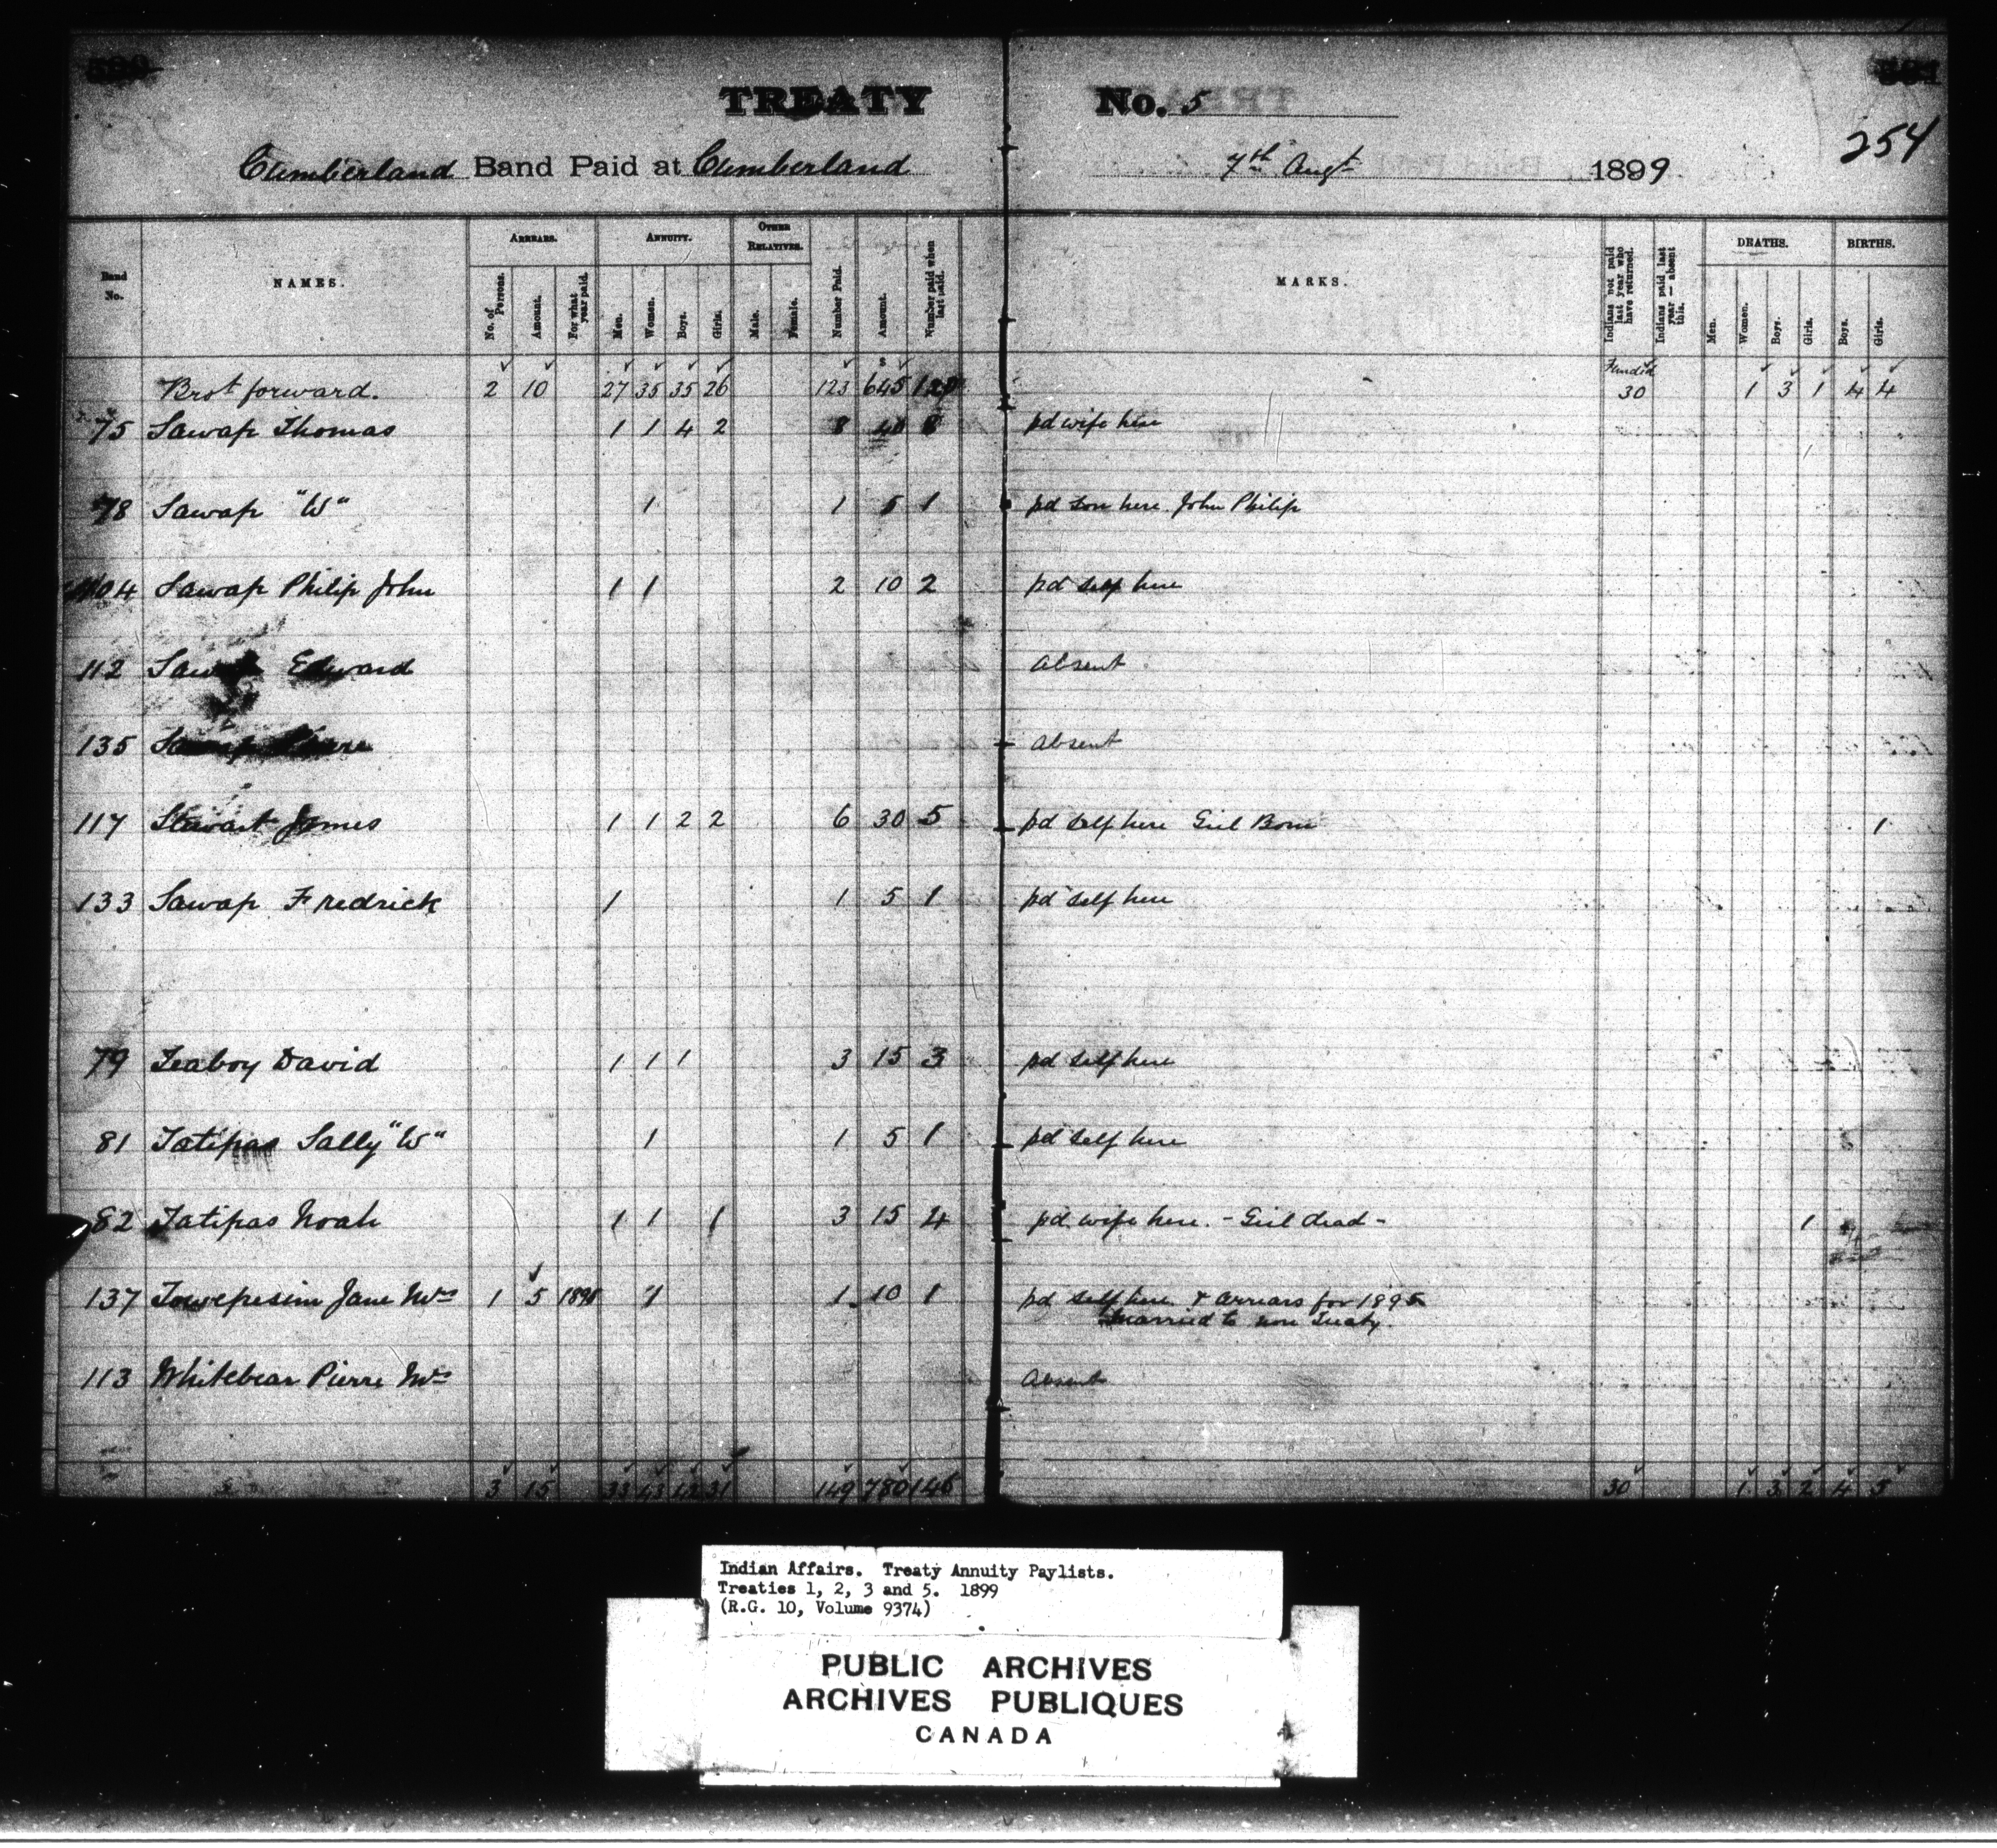 TREATY No. 5
254
Cumberland Band Paid at Cumberland 7th Augt 1899
Band No. NAMES. ARREARS. ANNUITY. OTHER RELATIVES. Number Paid. Amount. Number paid when last paid. MARKS. Indians not paid last year who have returned. Indians paid last year — absent this. DEATHS. BIRTHS.
No. of Persons. Amount. For what year paid. Men. Women. Boys. Girls. Male. Female. Men. Women. Boys. Girls. Boys. Girls.
$ Funded
Brot forward. 2 10 27 35 35 26 123 645 30 1 3 1 4 4
75 Sawap Thomas 1 1 4 2 8 40 8 pd wife here
78 Sawap "W" 1 1 5 1 pd son here. John Philip
104 Sawap Philip John 1 1 2 10 2 pd self here
112 Sawap Edward Absent
135 Sawap Absent
117 Stewart James 1 1 2 2 6 30 5 pd self here Girl Born 1
133 Sawap Fredrick 1 1 5 1 pd self here
79 Teaboy David 1 1 1 3 15 3 pd self here
81 Tatipas Sally "W" 1 1 5 1 pd self here
82 Tatipas Noah 1 1 1 3 15 4 pd wife here. - Girl dead - 1
137 Jane Mrs 1 5 1 1 10 1 pd self here & arrears for 1895
Married to non Treaty.
113 Whitebear Pierre Mrs Absent
3 15 33 43 42 31 149 780 146 30 1 3 2 4 5
Indian Affairs. Treaty Annuity Paylists.
Treaties 1, 2, 3 and 5. 1899
(R.G. 10, Volume 9374)
PUBLIC ARCHIVES
ARCHIVES PUBLIQUES
CANADA